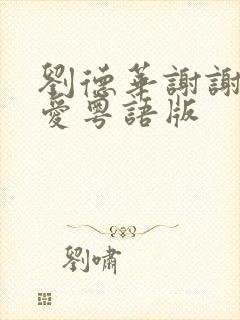 劉德華謝謝
愛粵語版
劉嘯